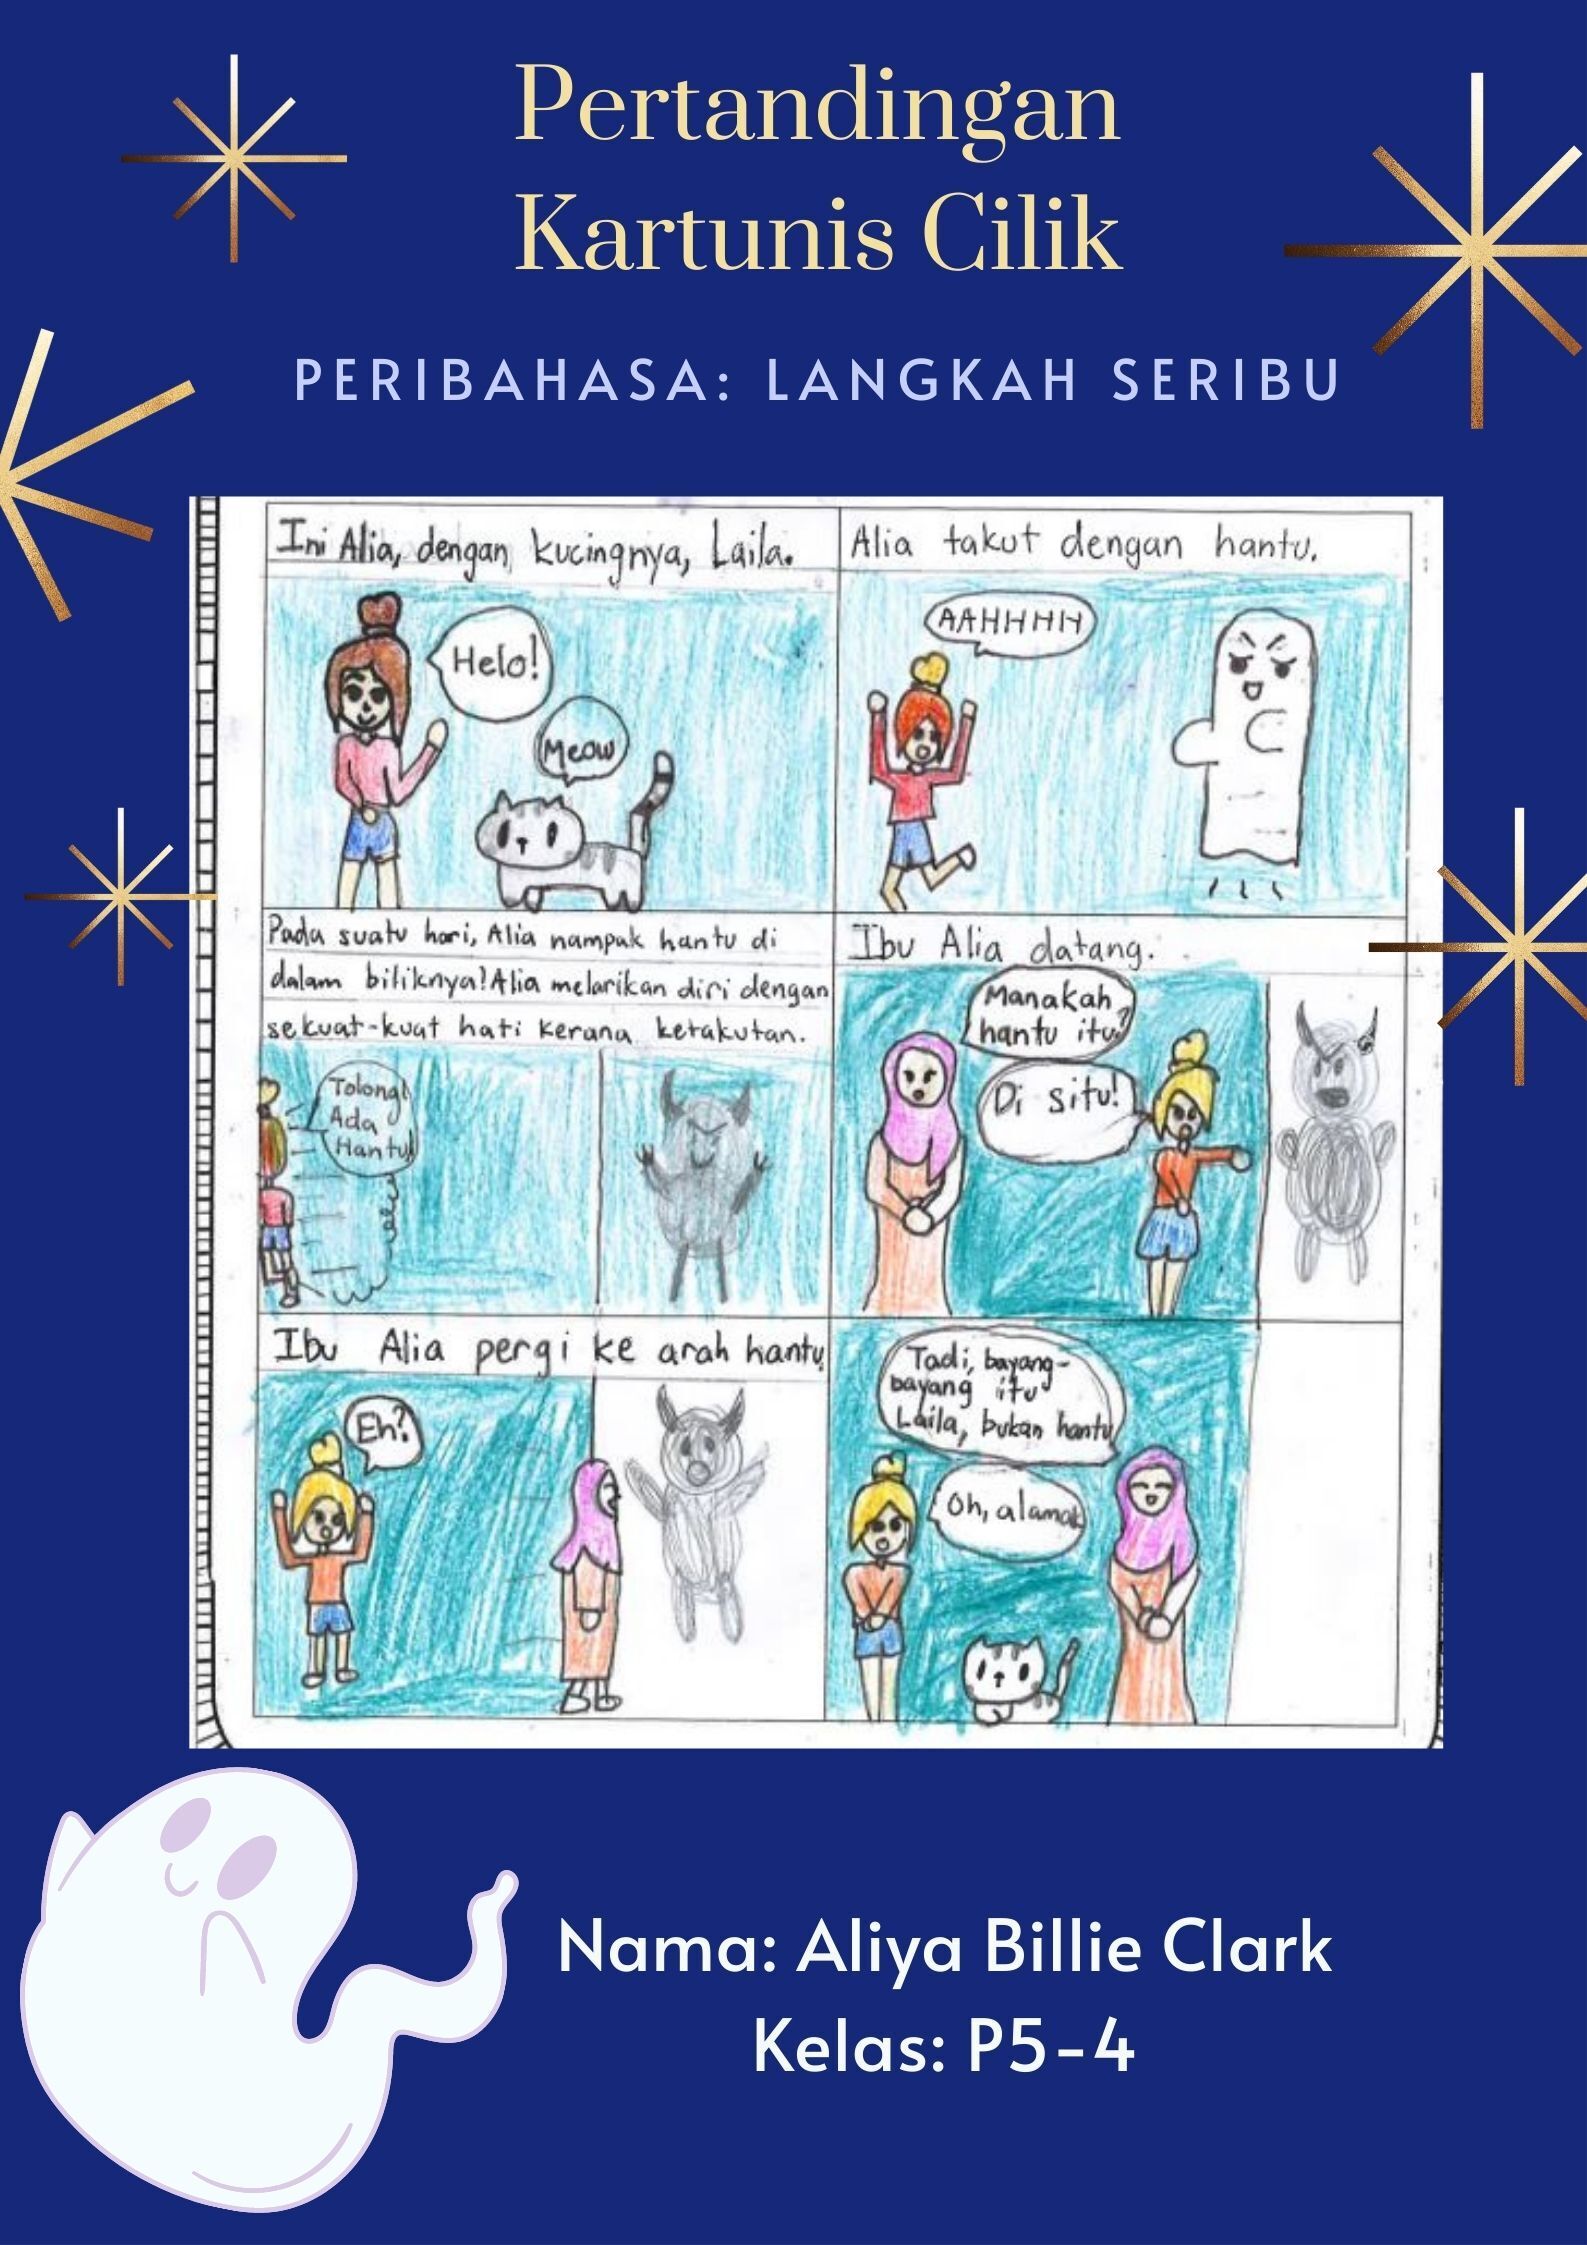 Pertandingan
Kartunis Cilik
PERIBAHASA: LANGKAH SERIBU
Ini Alia, dengan kucingnya, Laila.
Helo!
Meow
Alia takut dengan hantu.
AAHHHHH
Pada suatu hari, Alia nampak hantu di
dalam biliknya! Alia melarikan diri dengan
sekuat-kuat hati kerana ketakutan.
Tolong!
Ada
Hantu!
Ibu Alia datang.
Manakah
hantu itu?
Di situ!
Ibu Alia pergi ke arah hantu
Eh?
Tadi, bayang-
bayang itu
Laila, bukan hantu
Oh, alamak
Nama: Aliya Billie Clark
Kelas: P5-4